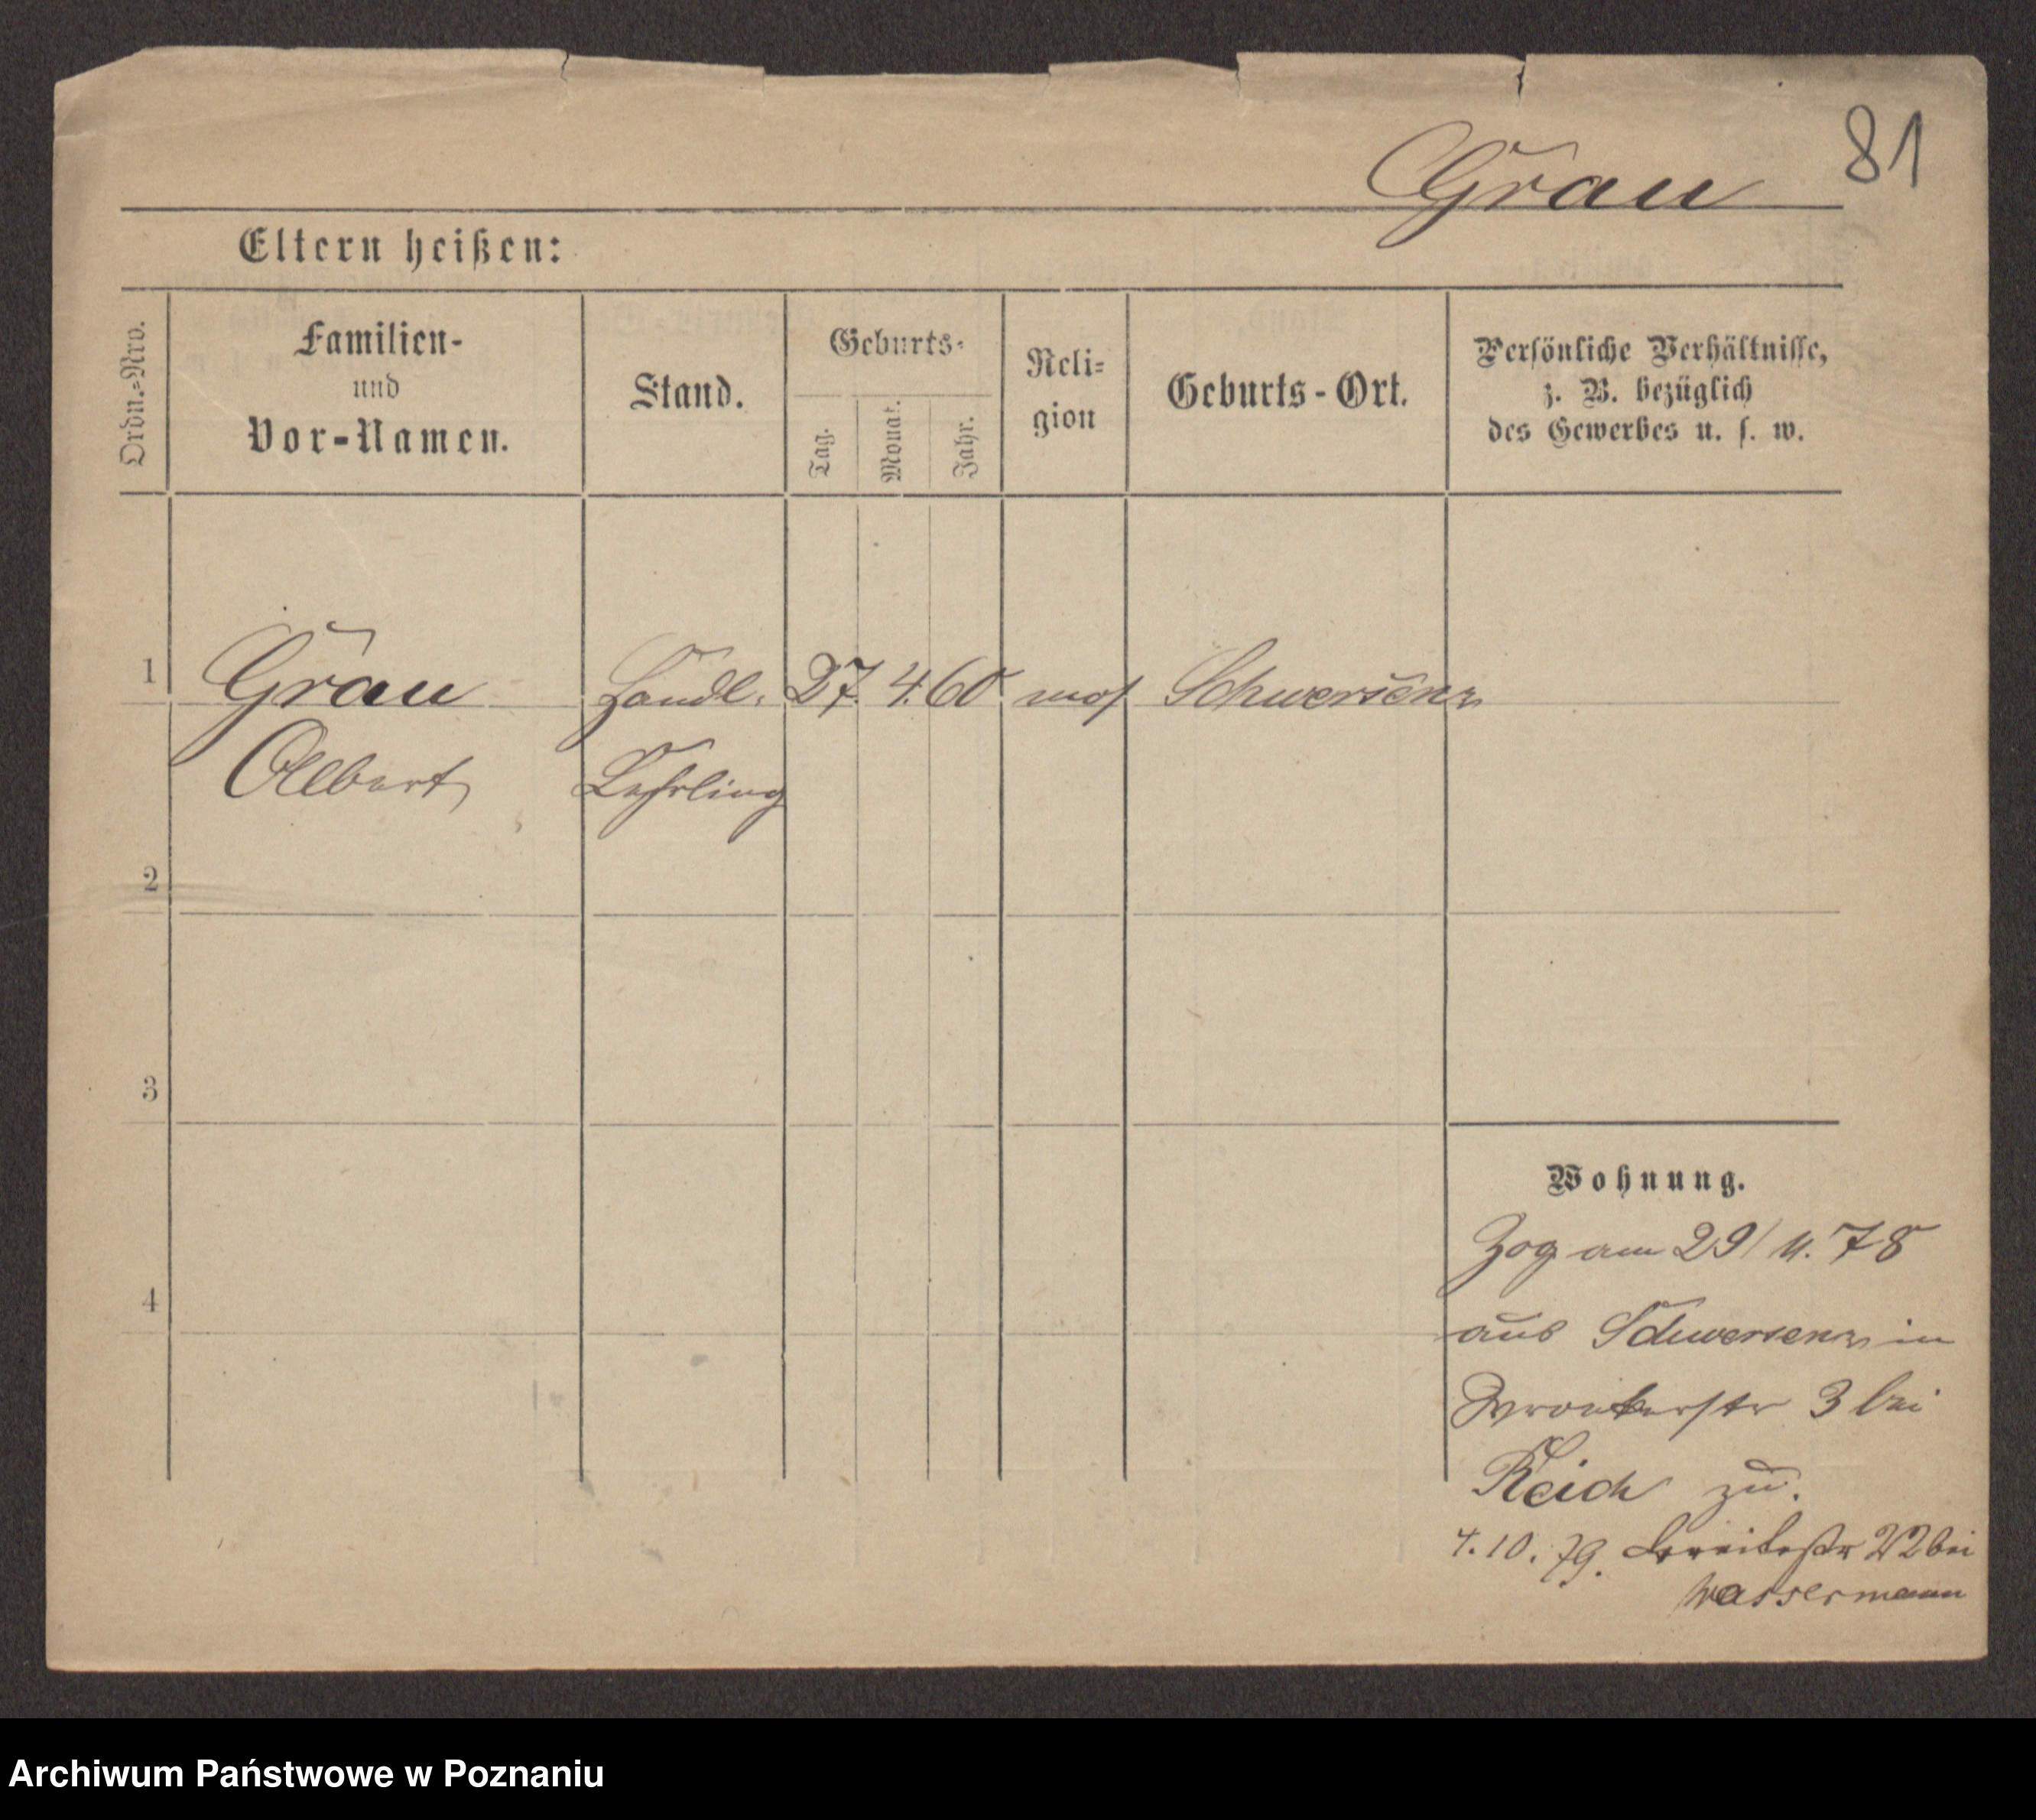 81
Grau
Eltern heißen:
Ordn.=Nro.
Familien-
und
Vor-Namen.
Stand.
Geburts=
Tag.
Monat.
Jahr.
Reli=
gion
Geburts-Ort.
Persönliche Verhältnisse,
z. B. bezüglich
des Gewerbes u. s. w.
1 Grau Handl. 27. 4. 60 mos Schwersenz
Albert Lehrling
2
3
4
Wohnung.
Zog am 29/4. 78
aus Schwersenz in
Wronkerstr 3 bei
Reich zu.
4.10.79. Breitestr 22 bei
Wassermann
Archiwum Państwowe w Poznaniu